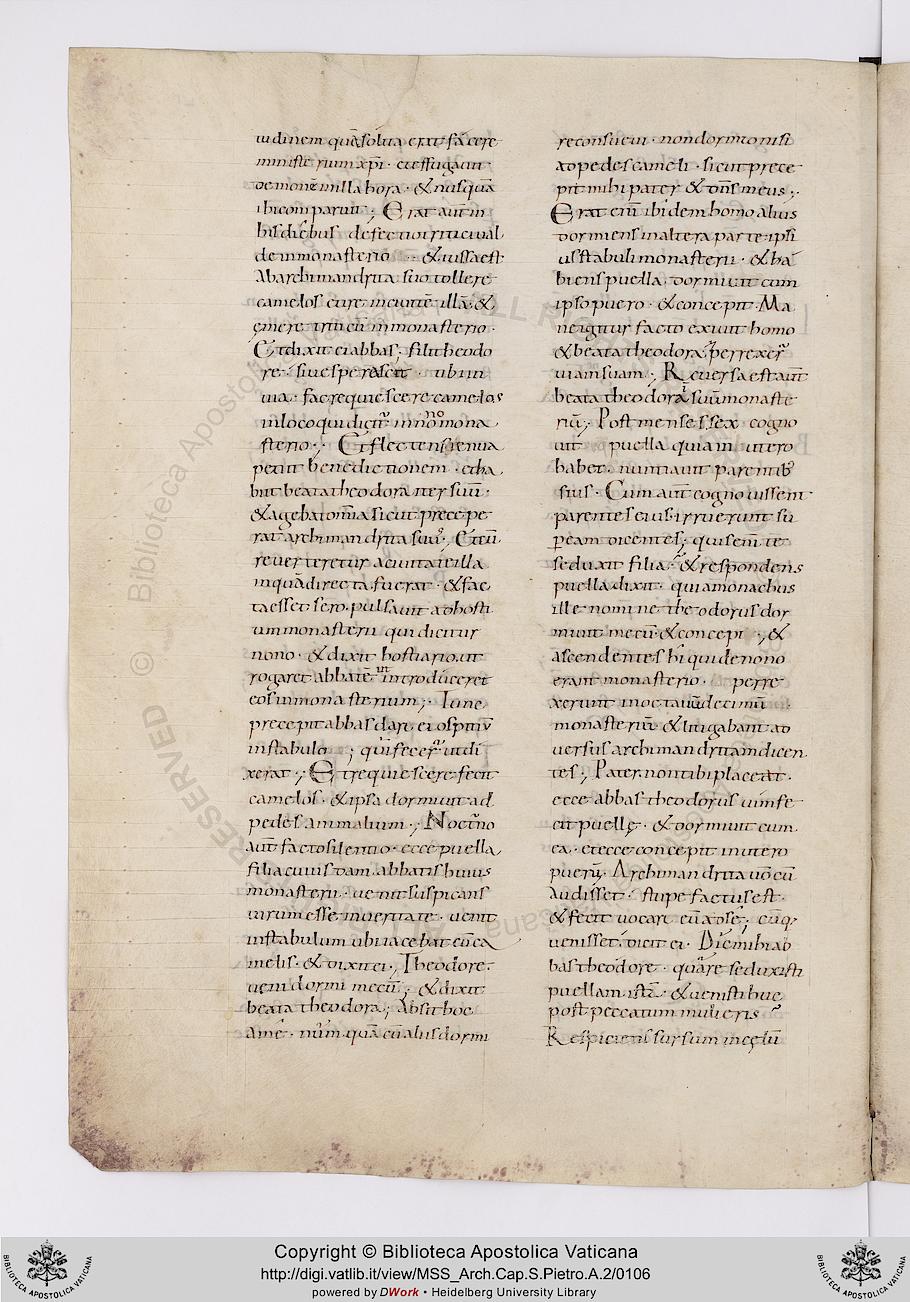 tudinem quã solita erat facere
ministerium xp̃i · et effugauit
demonẽ in illa hora · & nusquã
ibi comparuit ; Erat aut̃ in
his diebus defectio tritici uel
dei in monasterio & iussa est
Ab archimandrita suo tollere
camelos et ire in ciuitẽ illã · &
ęmere triticũ in monasterio ·
Et dixit ei abbas ; fili theodo
re · si uesperascit · ubi in
uia · fac requiescere camelos
in loco qui dicit̃ in nono mona
sterio ; Et flectens genua
petiit benedictionem · et ha
buit beata theodora iter suũ ·
& agebat om̃ia sicut precepe
rat archimandrita suus ; Et cũ
reuerteretur a ciuitate illa
in quã directa fuerat · & fac
ta esset sero · pulsauit ad hosti
um monasterii qui dicitur
nono · & dixit hostiario ut
rogaret abbatẽ ut introduceret
eos in monasterium ; Tunc
precepit abbas dari ei ospitiũ
in stabulo ; qui fecer̃ ut di
xerat ; Et requiescere fecit
camelos · & ipsa dormiuit ad
pedes animalium ; Nocturno
aut̃ facto silentio · ecce puella
filia cuiusdam abbatis huius
monasterii · uenit suspicans
uirum esse in ueritate · uenit
in stabulum ubi iacebat cũ ca
melis · & dixit ei ; Theodore ·
ueni dormi mecũ ; & dixit
beata theodora ; Absit hoc
a me · nũquã cũ aliis dormi
re consueui · non dormio nisi
ad pedes cameli · sicut prece
pit mihi pater & dñs meus ;
Erat eni ibidem homo alius
dormiens in altera parte ipsi
us stabuli monasterii · & ha
biens puella · dormiuit cum
ipso puero · & concepit · Ma
ne igitur facto exiuit homo
& beata theodora perrexer̃
uiam suam ; Reuersa est aut̃
beata theodora ad suũ monaste
riũ ; Post menses sex cogno
uit puella quia in utero
habet · nuntiauit parentib;
suis · Cum aut̃ cognouissent
parentes eius · irruerunt su
per eam dicentes ; quis enĩ te
seduxit filia · & respondens
puella dixit · quia monachus
ille nomine theodorus dor
miuit mecũ · & concepi ; &
ascendentes hi qui de nono
erant monasterio · perre
xerunt in octauũ decimũ
monasteriũ & litigabant ad
uersus archimandritam dicen
tes ; Pater non tibi placeat ·
ecce abbas theodorus uim fe
cit puellę · & dormiuit cum
ea · et ecce concepit in utero
puerũ · Archimandrita uo cũ
audisset · stupefactus est ·
& fecit uocari eũ ad se ; cũq;
uenisset · dicit ei · Dic mihi ab
bas theodore · quare seduxisti
puellam istã · & uenisti huc
post peccatum mulieris ?
Respiciens sursum in cęlũ
Copyright © Biblioteca Apostolica Vaticana
http://digi.vatlib.it/view/MSS_Arch.Cap.S.Pietro.A.2/0106
powered by DWork • Heidelberg University Library